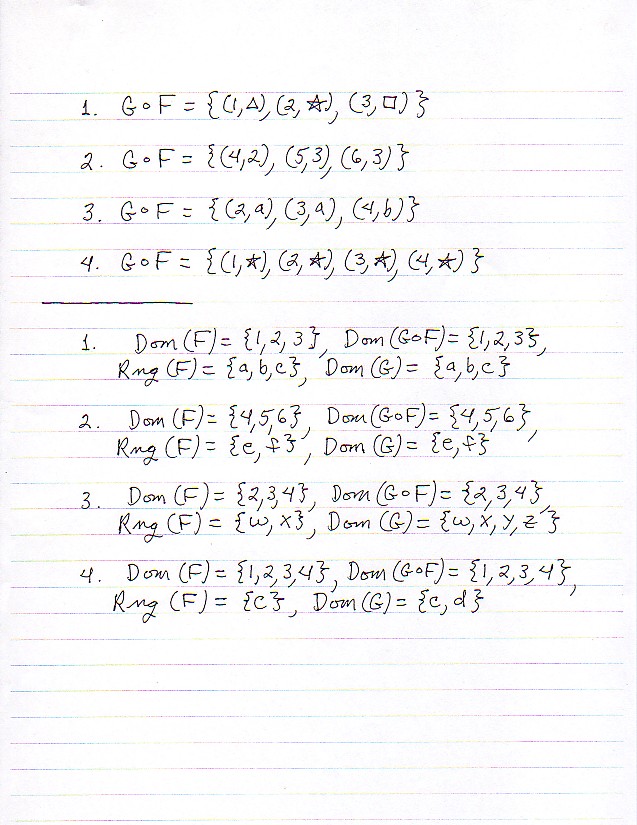 1. G∘F = {(1,△), (2,☆), (3,□)}
2. G∘F = {(4,2), (5,3), (6,3)}
3. G∘F = {(2,a), (3,a), (4,b)}
4. G∘F = {(1,☆), (2,☆), (3,☆), (4,☆)}
1. Dom(F) = {1,2,3}, Dom(G∘F) = {1,2,3},
Rng(F) = {a,b,c}, Dom(G) = {a,b,c}
2. Dom(F) = {4,5,6}, Dom(G∘F) = {4,5,6},
Rng(F) = {e,f}, Dom(G) = {e,f}
3. Dom(F) = {2,3,4}, Dom(G∘F) = {2,3,4},
Rng(F) = {w,x}, Dom(G) = {w,x,y,z}
4. Dom(F) = {1,2,3,4}, Dom(G∘F) = {1,2,3,4},
Rng(F) = {c}, Dom(G) = {c,d}